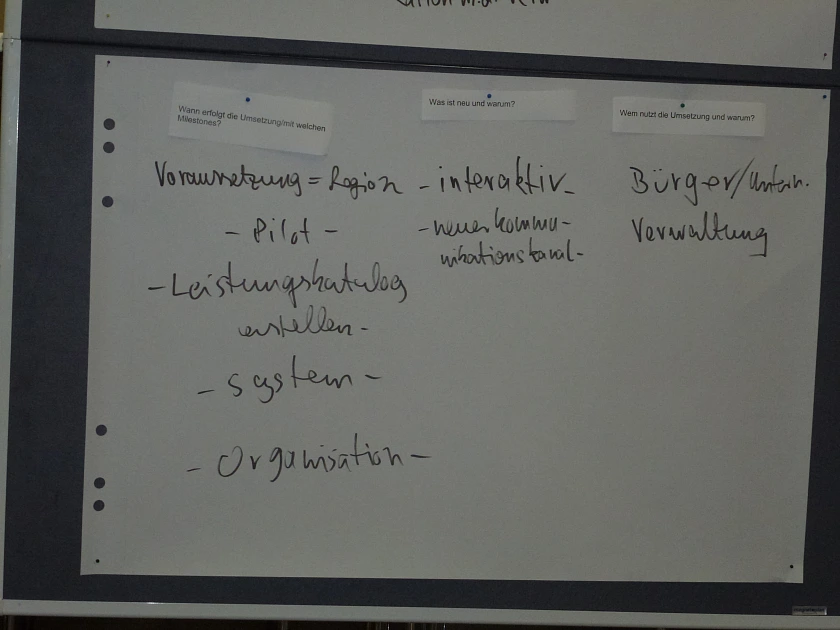 Wann erfolgt die Umsetzung/mit welchen
Milestones?
Voraussetzung = Region
- Pilot -
- Leistungskatalog
erstellen -
- System -
- Organisation -
Was ist neu und warum?
- interaktiv -
- neuer Kommu-
nikationskanal -
Wem nutzt die Umsetzung und warum?
Bürger/Untern.
Verwaltung